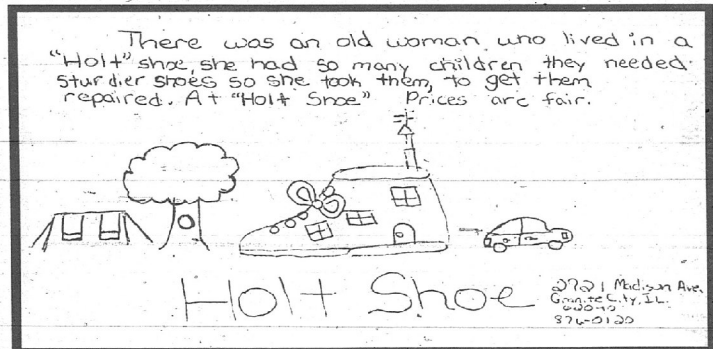 There was an old woman, who lived in a
"Holt" shoe, she had so many children they needed
sturdier shoes so she took them, to get them
repaired. At "Holt Shoe" Prices are fair.
Holt Shoe
2721 Madison Ave,
Granite City, IL.
62040
876-0120